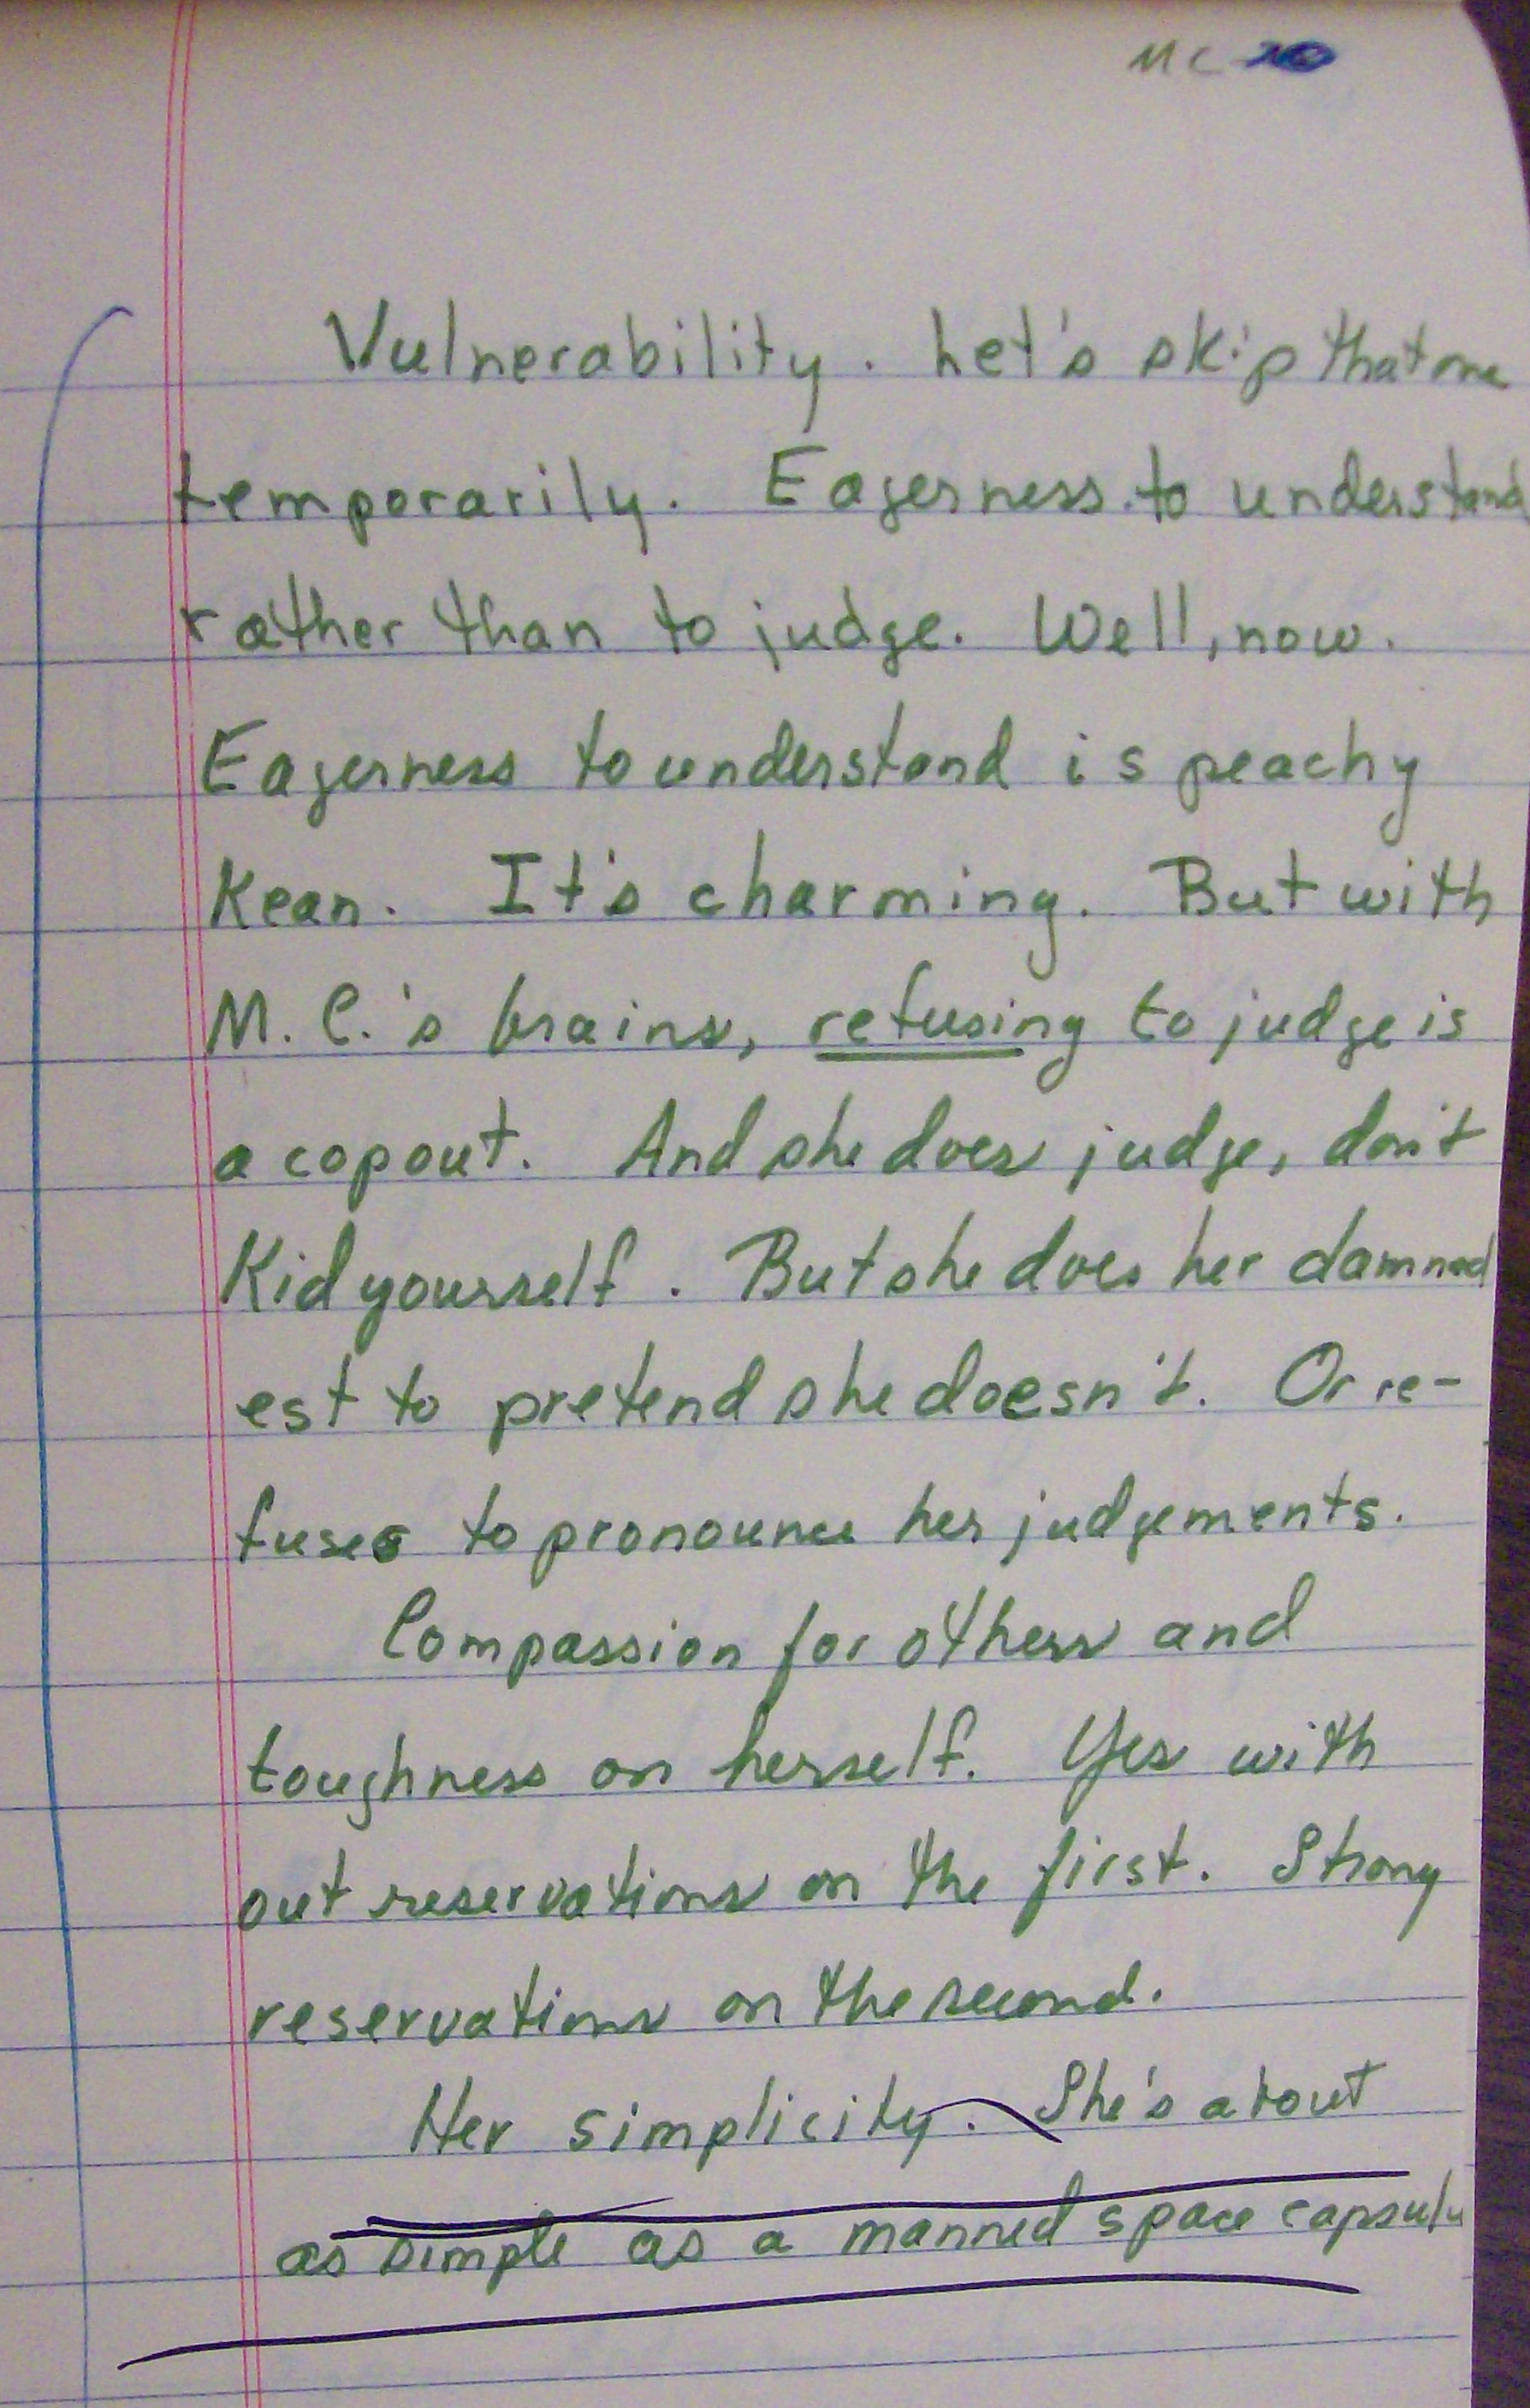 MC
Vulnerability. Let's skip that one
temporarily. Eagerness to understand
rather than to judge. Well, now.
Eagerness to understand is peachy
Kean. It's charming. But with
M. C.'s brains, refusing to judge is
a copout. And she does judge, don't
Kid yourself. But she does her damned
est to pretend she doesn't. Or re-
fuses to pronounce her judgements.
Compassion for others and
toughness on herself. Yes with
out reservations on the first. Strong
reservations on the second.
Her simplicity. She's about
as simple as a manned space capsule